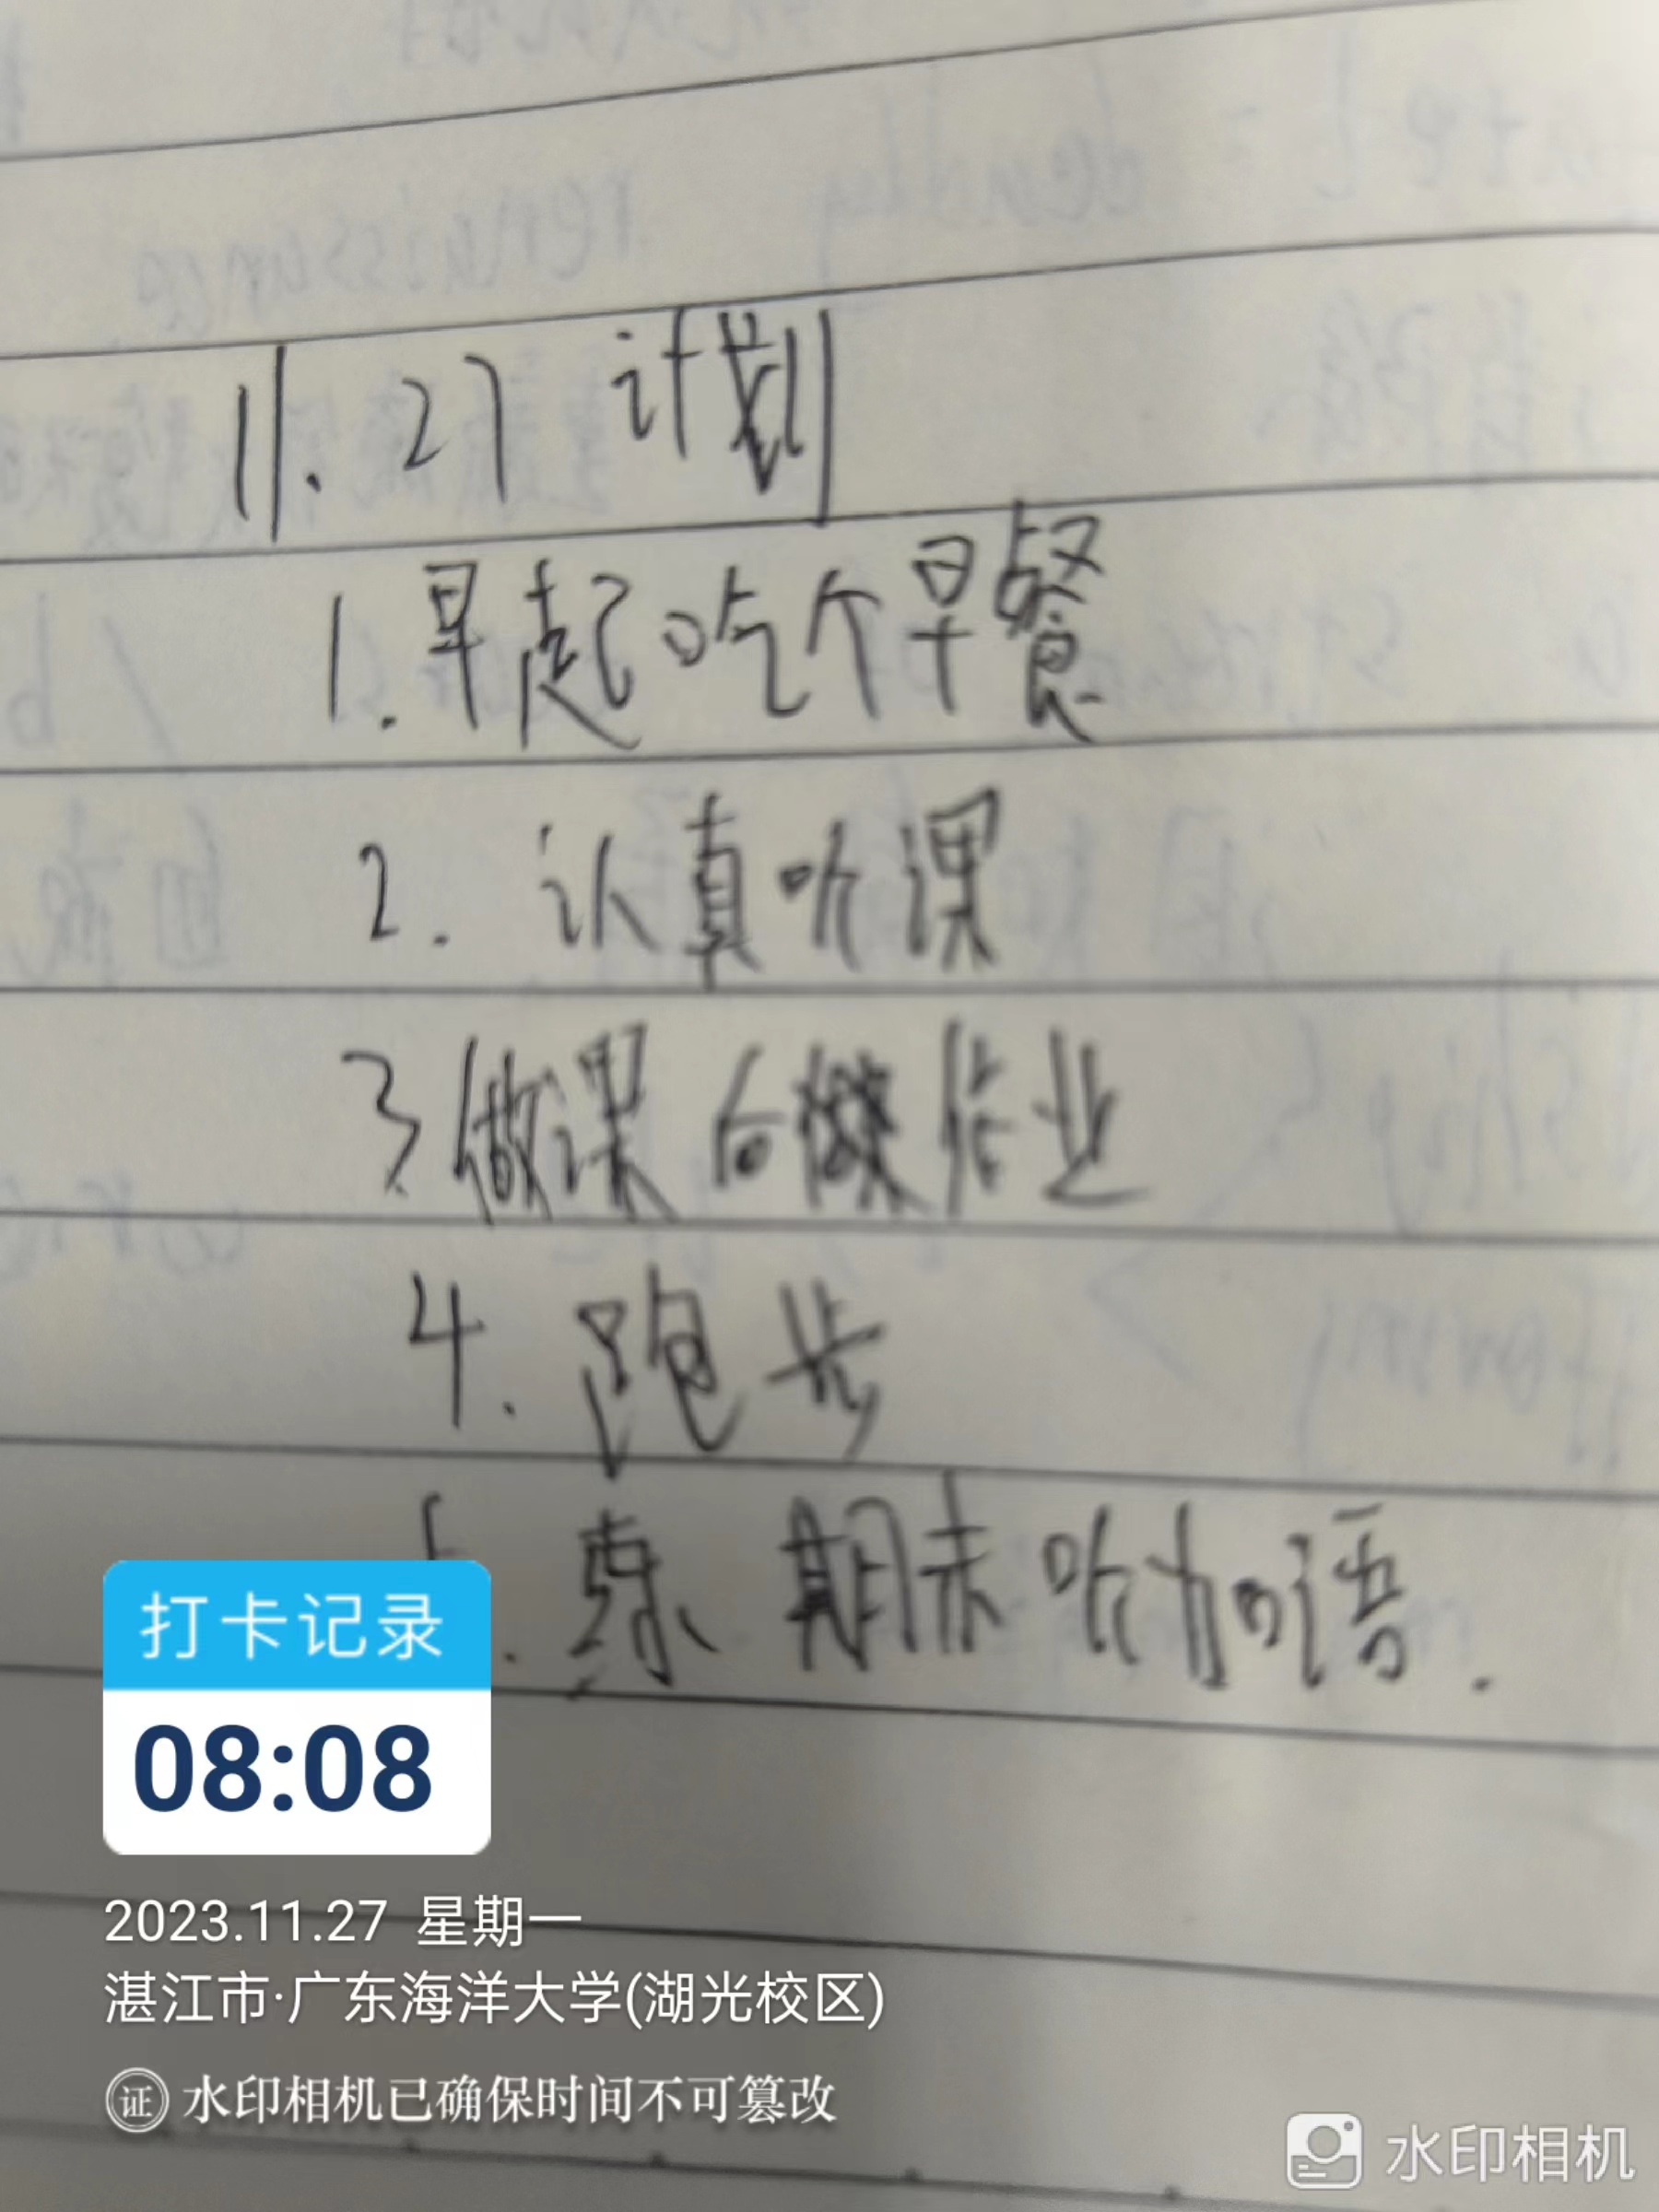 11.27 计划
1.早起吃个早餐
2.认真听课
3.做课后作业
4.跑步
练期末听力口语.
打卡记录
08:08
2023.11.27 星期一
湛江市·广东海洋大学(湖光校区)
证 水印相机已确保时间不可篡改
水印相机